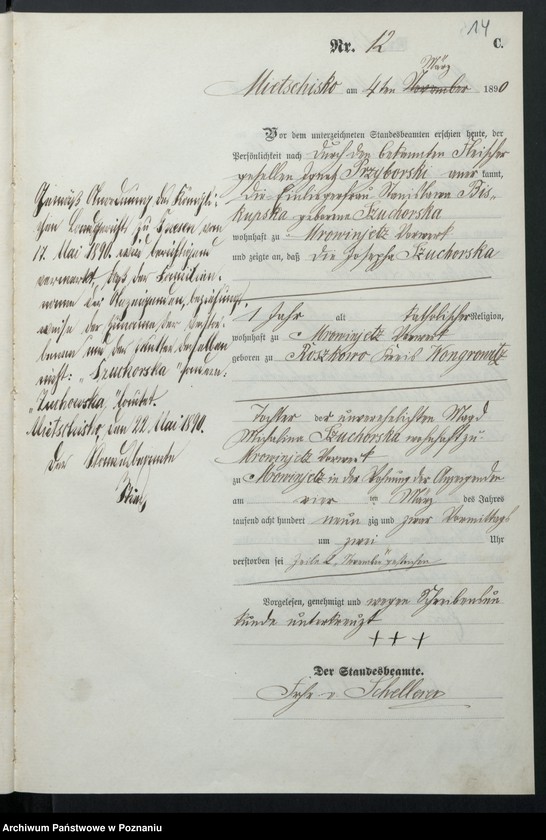 14
Nr. 12
C.
März
Mietschisko am 4ten November 1890
Vor dem unterzeichneten Standesbeamten erschien heute, der
Persönlichkeit nach durch den bekannten Fleischer
gesellen Ignatz Przyborski anerkannt,
die Einliegerfrau Stanislawa Bis-
kupska geborene Szuchorska
wohnhaft zu Mrowinjetz Vorwerk
und zeigte an, daß die Josepha Szuchorska
1 Jahr alt katholischer Religion,
wohnhaft zu Mrowinjetz Vorwerk
geboren zu Roszkowo Kreis Wongrowitz
Tochter der unverehelichten Magd
Michalina Szuchorska wohnhaft zu
Mrowinjetz Vorwerk
zu Mrowinjetz in der Wohnung der Anzeigende
am vier ten März des Jahres
tausend acht hundert neun zig und zwar Vormittags
um zwei Uhr
verstorben sei Zeile 2 „November“ gestrichen
Vorgelesen, genehmigt und wegen Schreibensun
kunde unterkreuzt
+++
Der Standesbeamte.
Frhr v. Schellerer
Gemäß Anordnung des Königli-
chen Landgerichts zu Gnesen vom
17. Mai 1890. wird berichtigend
vermerkt, daß der Familien-
name der Anzeigenden, beziehungs-
weise der Zuname der Verstor-
benen und der Mutter derselben
nicht: „Szuchorska“ sondern:
„Zuchowska“ lautet.
Mietschisko, den 22. Mai 1890.
Der Standesbeamte
Archiwum Państwowe w Poznaniu